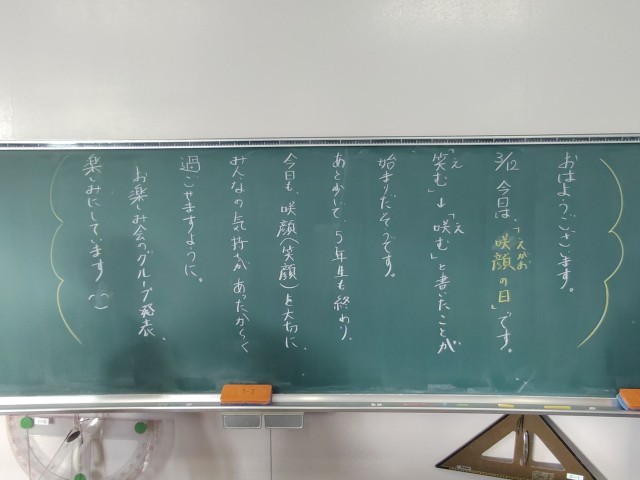 おはようございます。
3/12 今日は、「咲顔の日」です。
えがお
「笑む」→「咲む」と書いたことが
え
え
始まりだそうです。
あと少しで、5年生も終わり。
今日も、咲顔(笑顔)を大切に、
みんなの気持ちが あったかくく
過ごせますように。
お楽しみ会のグループ発表、
楽しみにしています